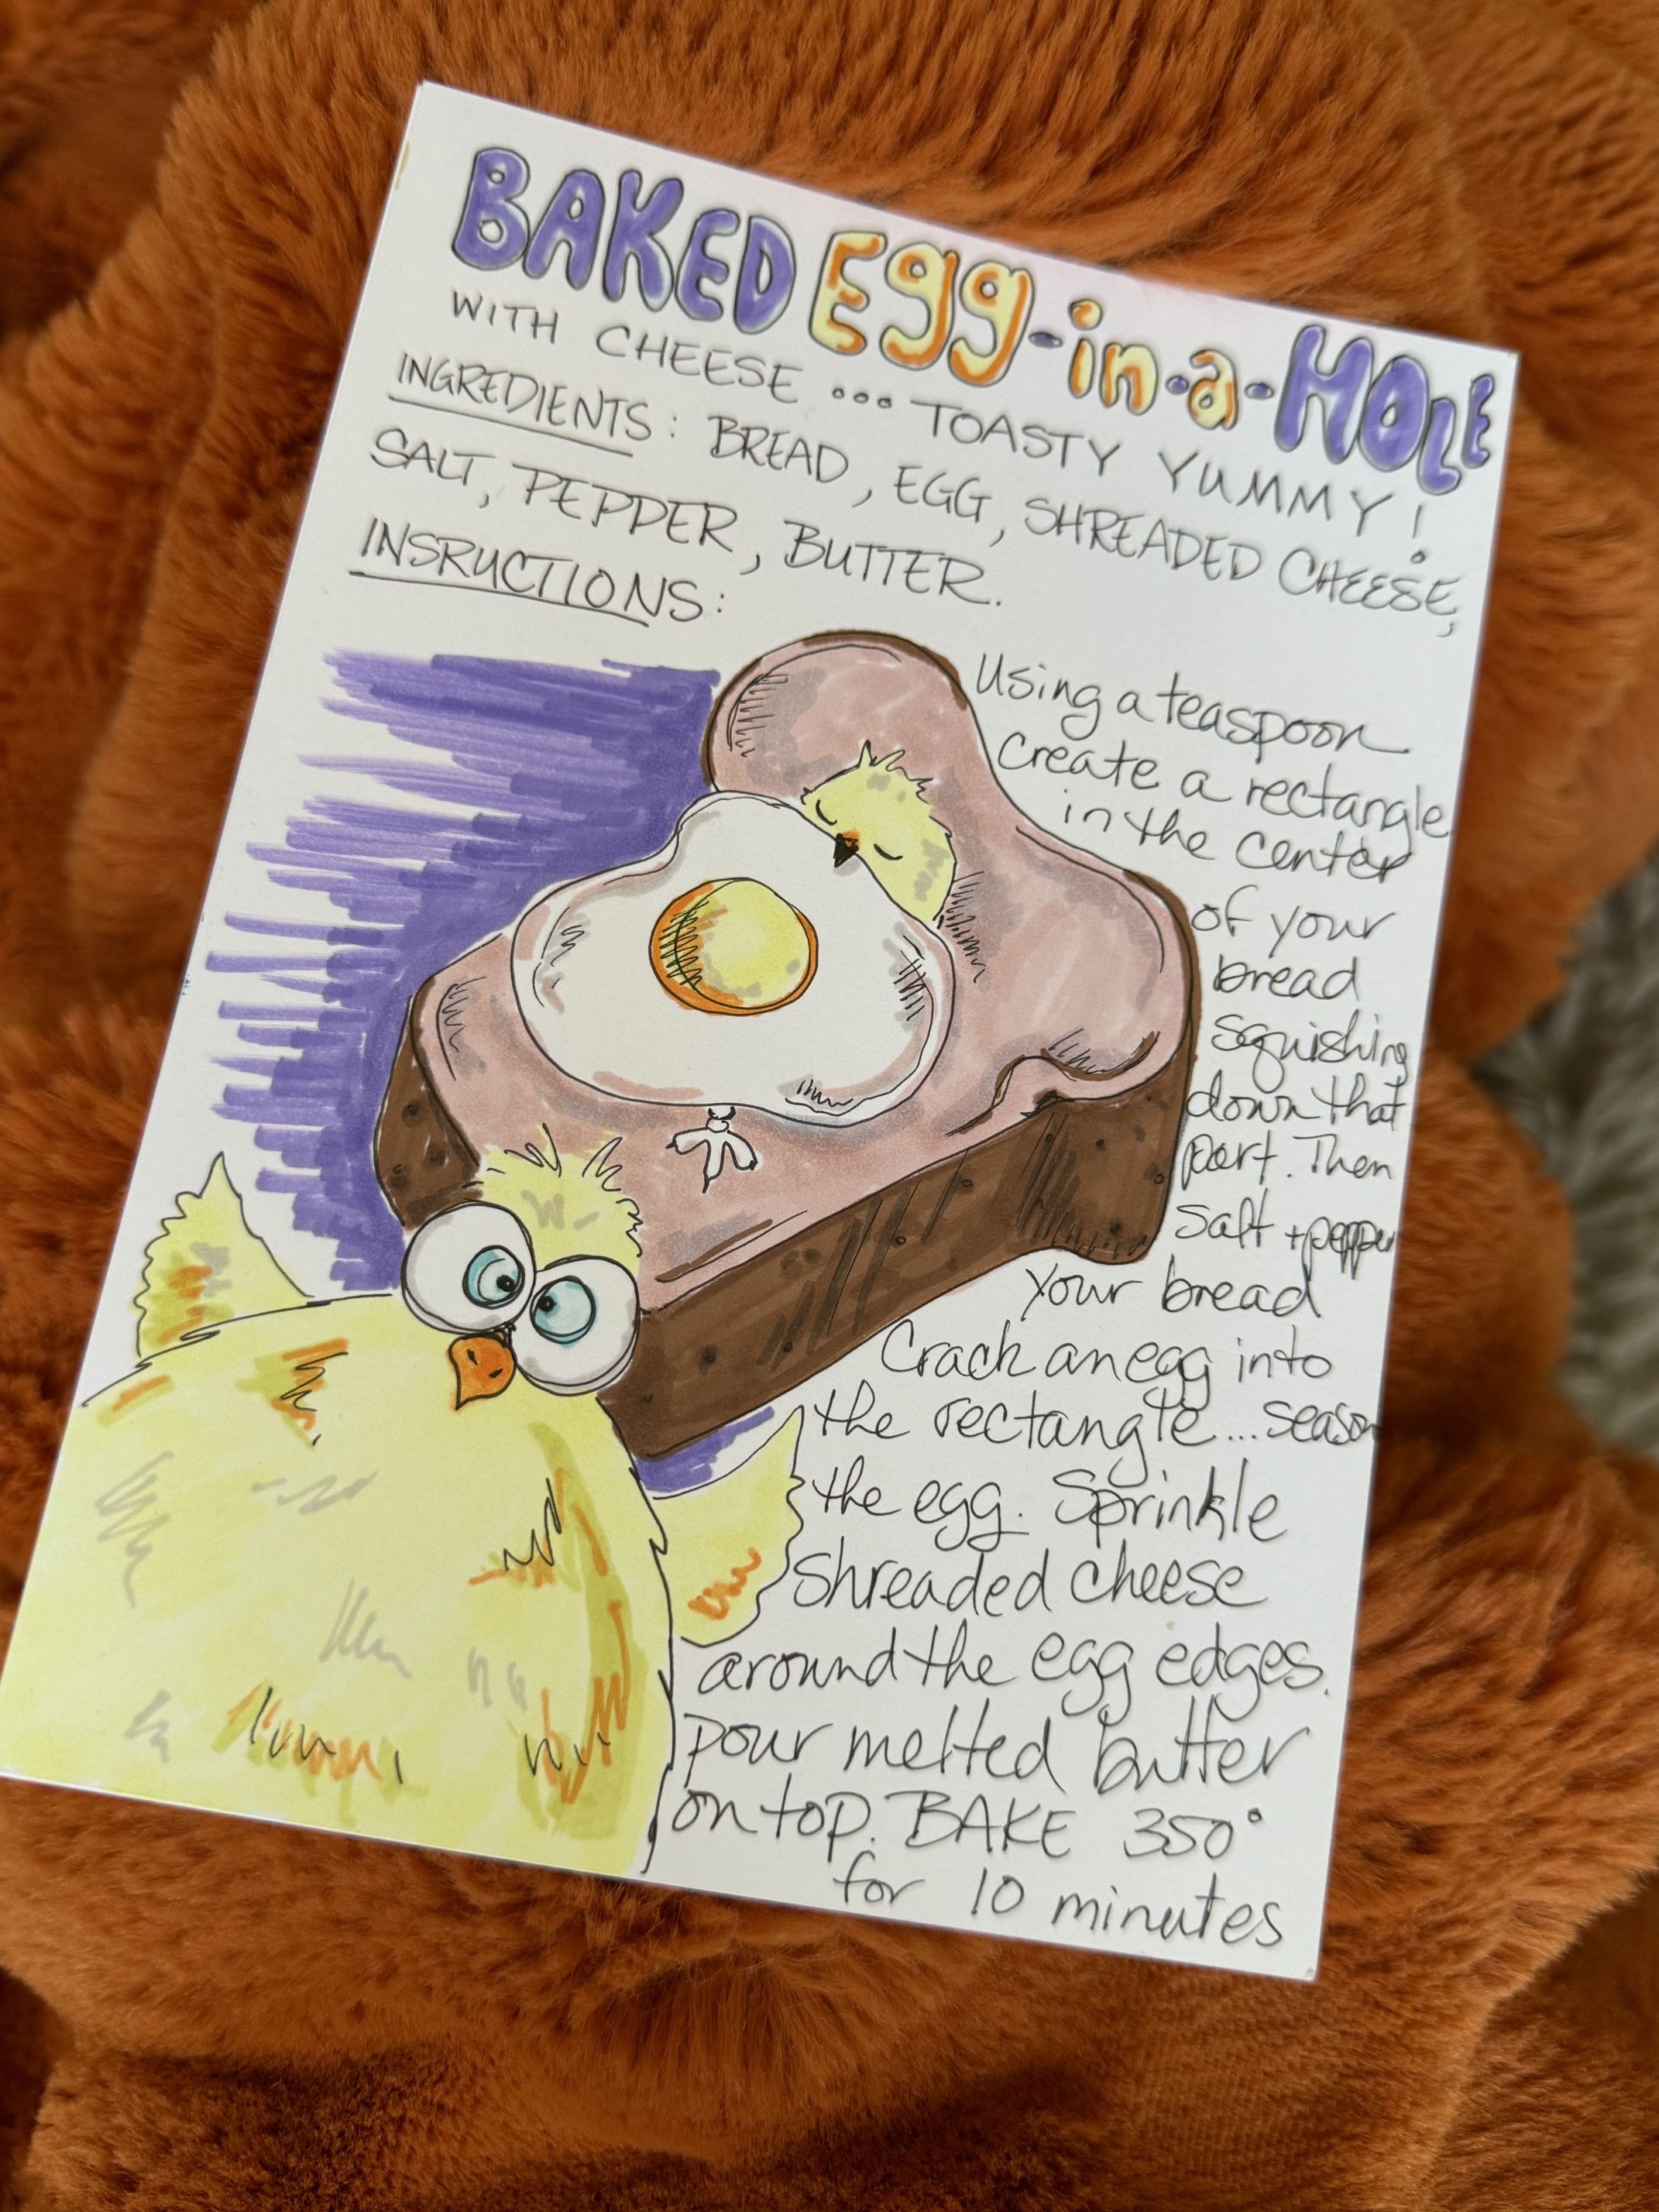 BAKED Egg-in-a-HOLE
WITH CHEESE ... TOASTY YUMMY!
INGREDIENTS: BREAD, EGG, SHREADED CHEESE,
SALT, PEPPER, BUTTER.
INSRUCTIONS:
Using a teaspoon
Create a rectangle
in the center
of your
bread
squishing
down that
part. Then
salt + pepper
your bread
Crack an egg into
the rectangle... season
the egg. Sprinkle
shreaded cheese
around the egg edges.
pour melted butter
on top. BAKE 350°
for 10 minutes